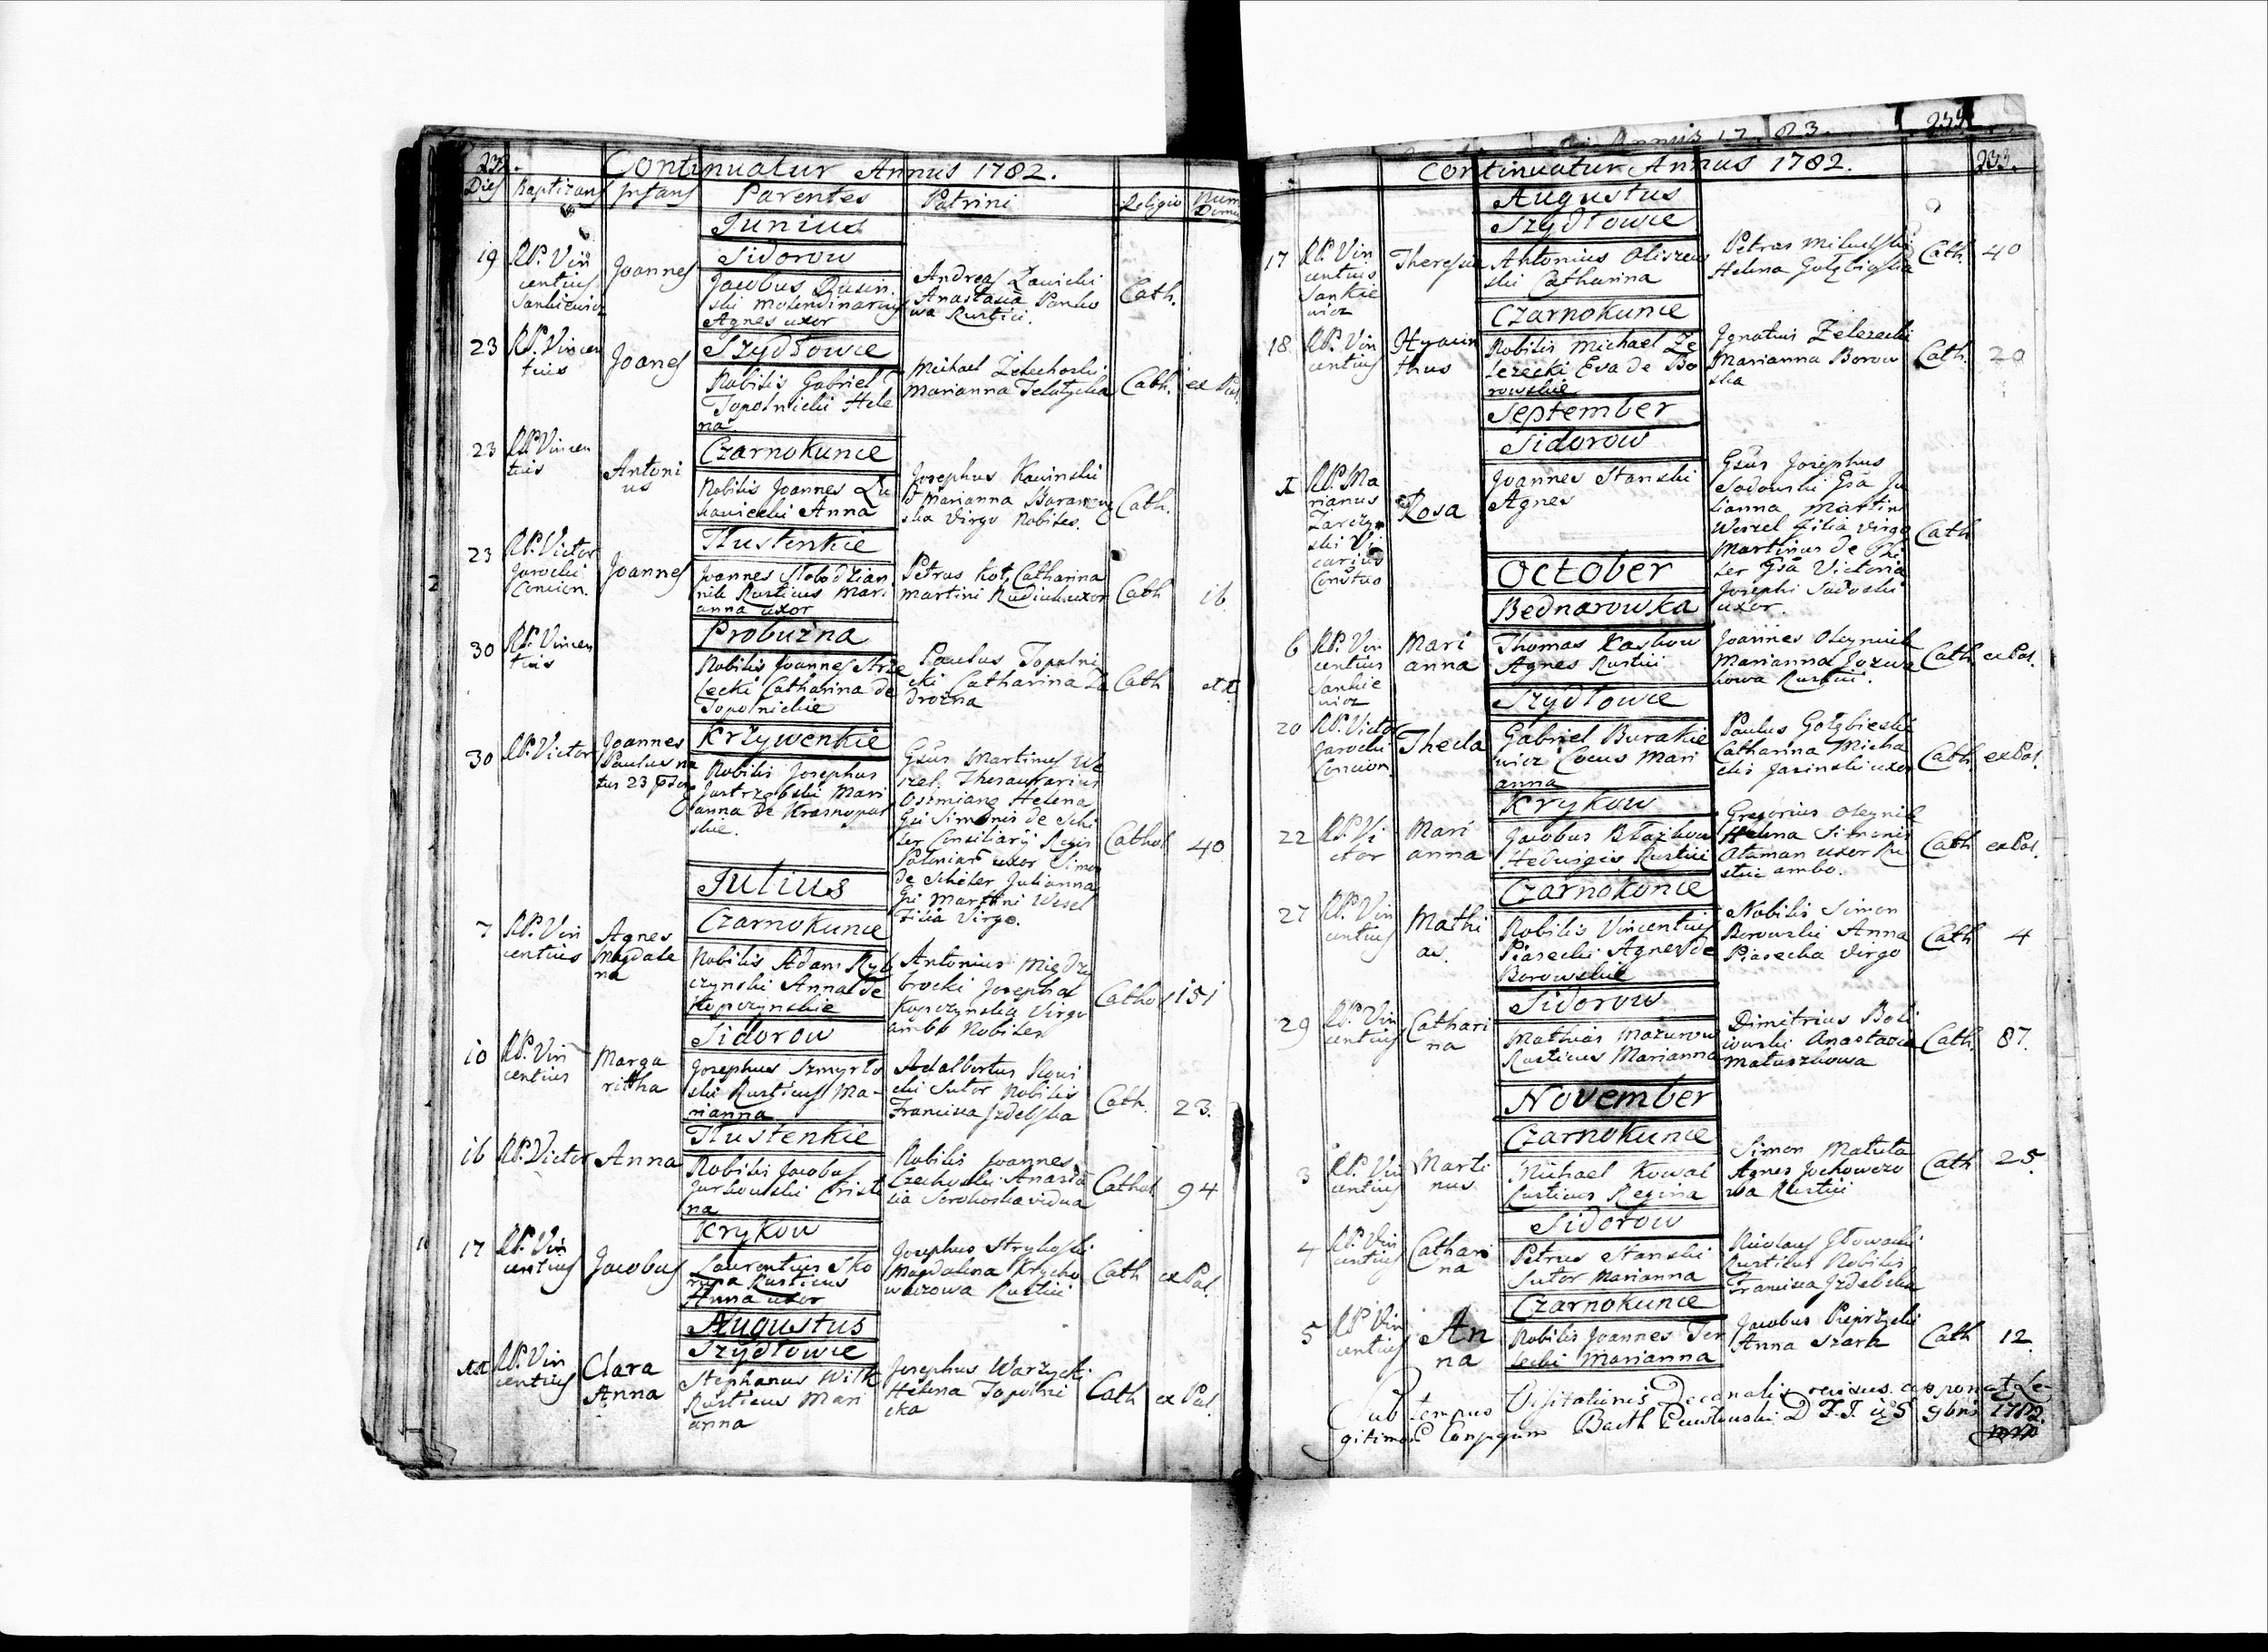 232.
Continuatur Annus 1782.
Dies Baptizans Infans Parentes Patrini Religio Num Domus
Junius
Sidorow
19 RP. Vin
centius
Sankiewicz
Joannes
Jacobus
ski Molendinarius
Agnes uxor
Andreas Zawicki
Anastasia Panko
wa Rustici.
Cath.
Szydłowce
23 RP. Vincen
tius
Joanes
Nobilis Gabriel
Topolnicki Hele
na
Michael Zelechoski
Marianna Telatycka
Cath.
ex Pal.
Czarnokunce
23 RP. Vincen
tius
Antoni
us
Nobilis Joannes Lu
kawiecki Anna
Josephus Kawinski
Marianna Baranow
ska Virgo Nobiles.
Cath.
Tłustenkie
23 RP. Victor
Jarocki
Concion.
Joannes
Joannes Slobodzian
nik Rusticus Mari
anna uxor
Petrus Kot, Catharina
Martini Rudiuk uxor
Cath
16
Probużna
30 RP. Vincen
tius
Nobilis Joannes Strze
lecki Catharina de
Topolnickie
Paulus Topolni
cki Catharina Za
drożna
Cath
Krzywenkie
30 RP. Victor
Joannes
Paulus na
tus 23
Nobilis Josephus
Jastrzębski Mari
anna de Krasnopol
skie.
Gsus Martinus We
zel. Thesaurarius
Osmiang Helena
Gsi Simonis de Schi
ler Consiliarij Regis
Poloniar uxor Simon
de Schiler Julianna
Gsi Martini Wesel
Filia Virgo.
Cathol
40
Julius
Czarnokunce
7 RP. Vin
centius
Agnes
Magdale
na
Nobilis Adam Ryb
czynski Anna de
Kopczynskie
Antonius Międzi
brocki Josepha
Kopczynska Virgo
ambo Nobiles
Cathol
151
Sidorow
10 RP. Vin
centius
Marga
rittha
Josephus Szmyrlo
ski Rusticus Ma-
rianna
Adalbertus Kowi
cki Sutor Nobilis
Francisca Izdebska
Cath.
23.
Tłustenkie
16 RP. Victor
Anna
Nobilis Jacobus
Jurkowski Cristi
na
Nobilis Joannes
Czechoski Anasta
cia Sorohoska vidua
Cathol
94
Krykow
17 RP. Vin
centius
Jacobus
Laurentius Sko
rupa Rusticus
Anna uxor
Josephus Strykoski
Magdalena Krycho
waczowa Rustici
Cath
ex Pal.
Augustus
Szydłowce
RP. Vin
centius
Clara
Anna
Stephanus Wilk
Rusticus Mari
anna
Josephus Warzycki
Helena Topolni
cka
Cath
ex Pal.
Annus 1783.
Continuatur Annus 1782.
233.
Augustus
Szydłowce
17 RP. Vin
centius
Sankie
wicz
Theresia
Antonius Oliszew
ski Catharina
Petrus
Helena Gołębioska
Cath.
40
Czarnokunce
18. RP. Vin
centius
Hyacin
thus
Nobilis Michael Że
lezecki Eva de Bo
rowskie
Ignatius Zelezecki
Marianna Borow
ska
Cath.
20
September
Sidorow
RP. Ma
rianus
Zarczyn
ski Vi
carius
Constus
Rosa
Joannes Stanski
Agnes
Gsus Josephus
Sadowski Gsa Ju
lianna Martini
Weszel Filia Virgo
Martinus de Schi
ler Gsa Victoria
Josephi Sadoski
uxor.
Cath
October
Bednarowka
6 RP. Vin
centius
Sankie
wicz
Mari
anna
Thomas Kaskow
Agnes Rustici
Joannes Oleynick
Marianna Jozwa
kowa Rustici.
Cath
ex Pal.
Szydłowce
20 RP. Victor
Jarocki
Concion.
Thecla
Gabriel Burakie
wicz Cocus Mari
anna
Paulus Gołębieski
Catharina Micha
elis Jasinski uxor
Cath.
ex Pal.
Krykow
22 RP. Vi
ctor
Mari
anna
Jacobus Błażkow
Hedvigis Rustici
Gregorius Oleynik
Helena Simonis
Ataman uxor Ru
stici ambo.
Cath
ex Pal.
Czarnokonce
27 RP. Vin
centius
Mathi
as.
Nobilis Vincentius
Piasecki Agnes de
Borowskie
Nobilis Simon
Borowski Anna
Piasecka Virgo
Cath
4
Sidorow
29 RP. Vin
centius
Cathari
na
Mathias Mazurow
Rusticus Marianna
Dimitrius Boli
kowski Anastazia
Matuszkowa
Cath.
87.
November
Czarnokunce
3 RP. Vin
centius
Marti
nus
Michael Kowal
Rusticus Regina
Simon Matuta
Agnes Jochowczo
wa Rustici
Cath
25.
Sidorow
4 RP. Vin
centius
Cathari
na
Petrus Stanski
Sutor Marianna
Nicolaus Głowacki
Rusticus Nobilis
Francisca Izdebska
Czarnokunce
5 RP. Vin
centius
An
na
Nobilis Joannes Ter
lecki Marianna
Jacobus Pieprzycki
Anna Szark
Cath
12
Sub tempus Visitationis Decanalis
9bris 1782.